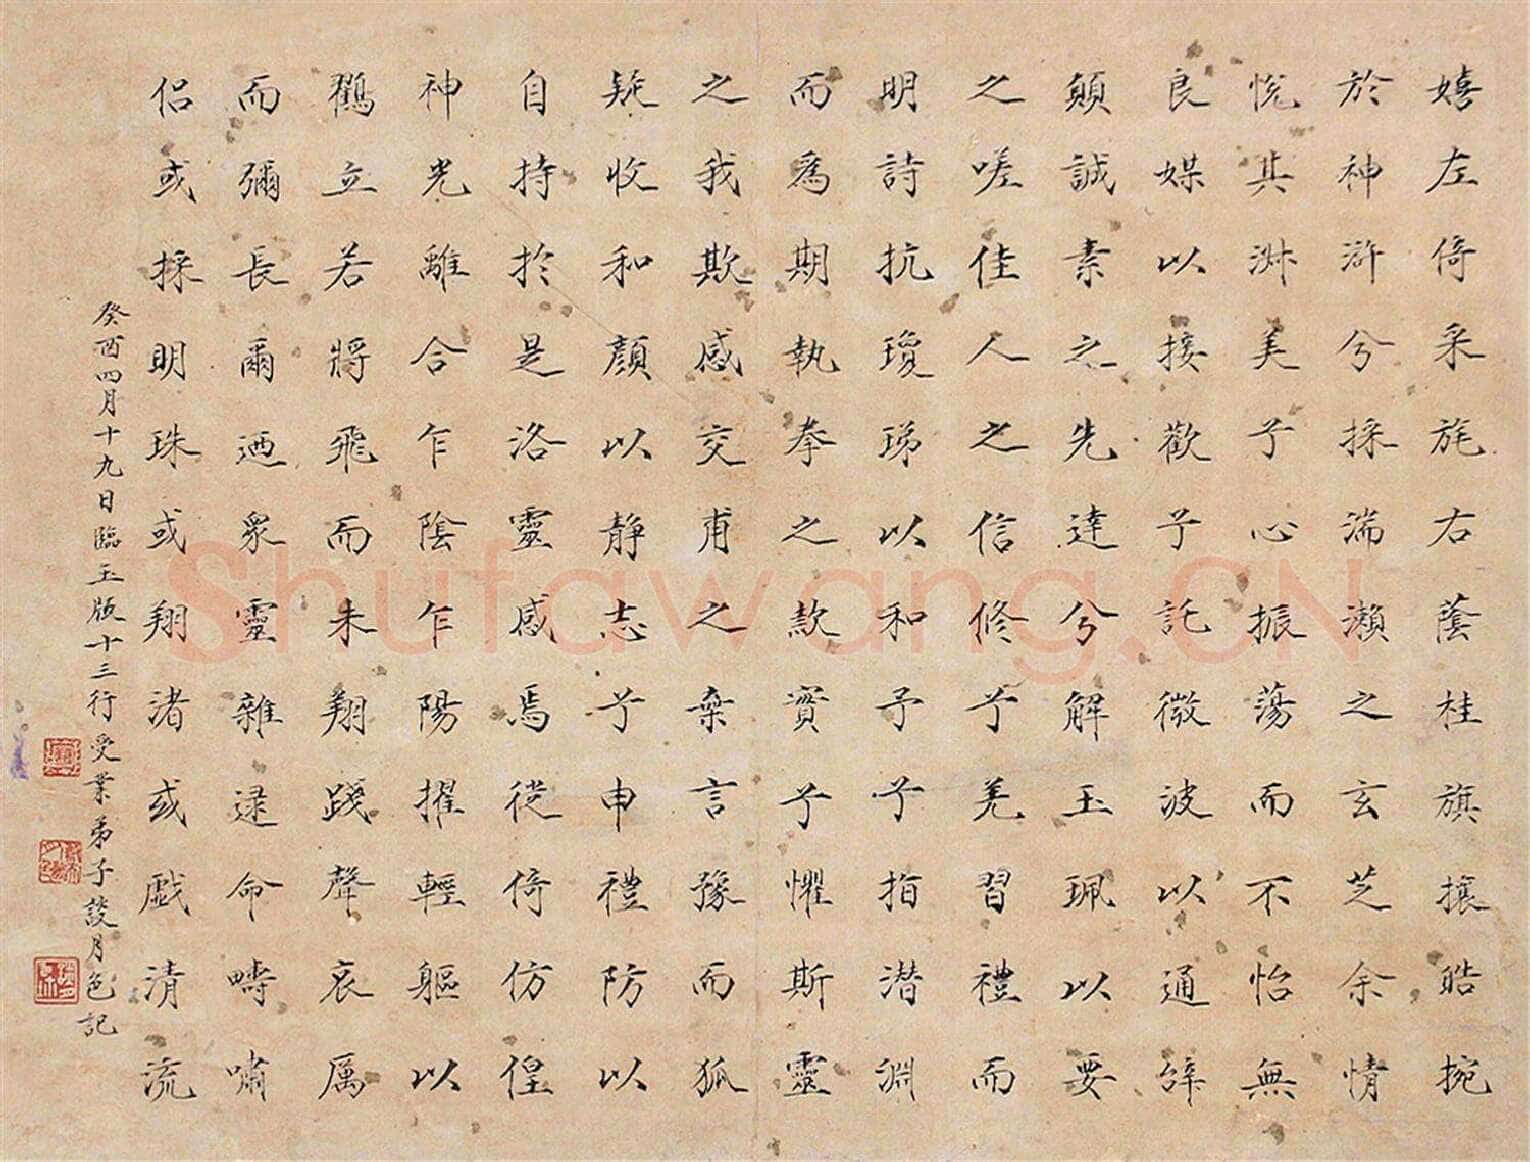 嬉左倚采旄右蔭桂旗攘皓捥
於神滸兮採湍瀨之玄芝余情
悅其淋美兮心振蕩而不怡無
良媒以接歡兮託微波以通辭
願誠素之先達兮解玉珮以要
之嗟佳人之信修兮羌習禮而
明詩抗瓊珶以和予兮指潛淵
而為期執拳之款實兮懼斯靈
之我欺感交甫之棄言豫而狐
疑收和顏以静志兮申禮防以
自持於是洛靈感焉徙倚仿偟
神光離合乍陰乍陽擢輕軀以
鶴立若將飛而未翔踐聲哀厲
而彌長爾迺眾靈雜逮命疇嘯
侶或採明珠或翔渚或戲清流
癸酉四月十九日臨玉版十三行受業弟子談月色記
Shufawang.CN